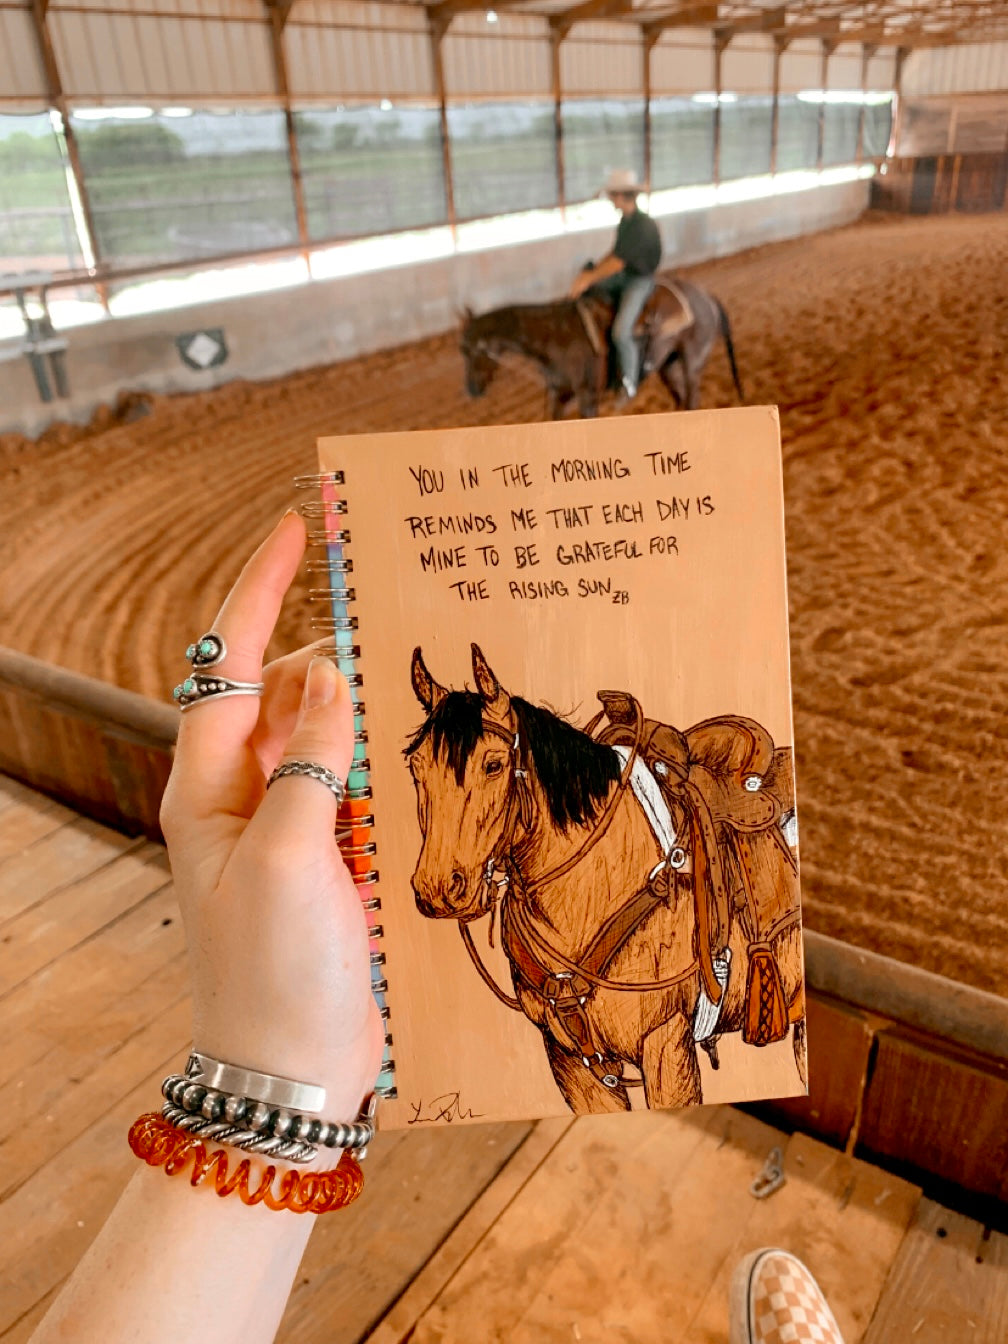 YOU IN THE MORNING TIME
REMINDS ME THAT EACH DAY IS
MINE TO BE GRATEFUL FOR
THE RISING SUN ZB